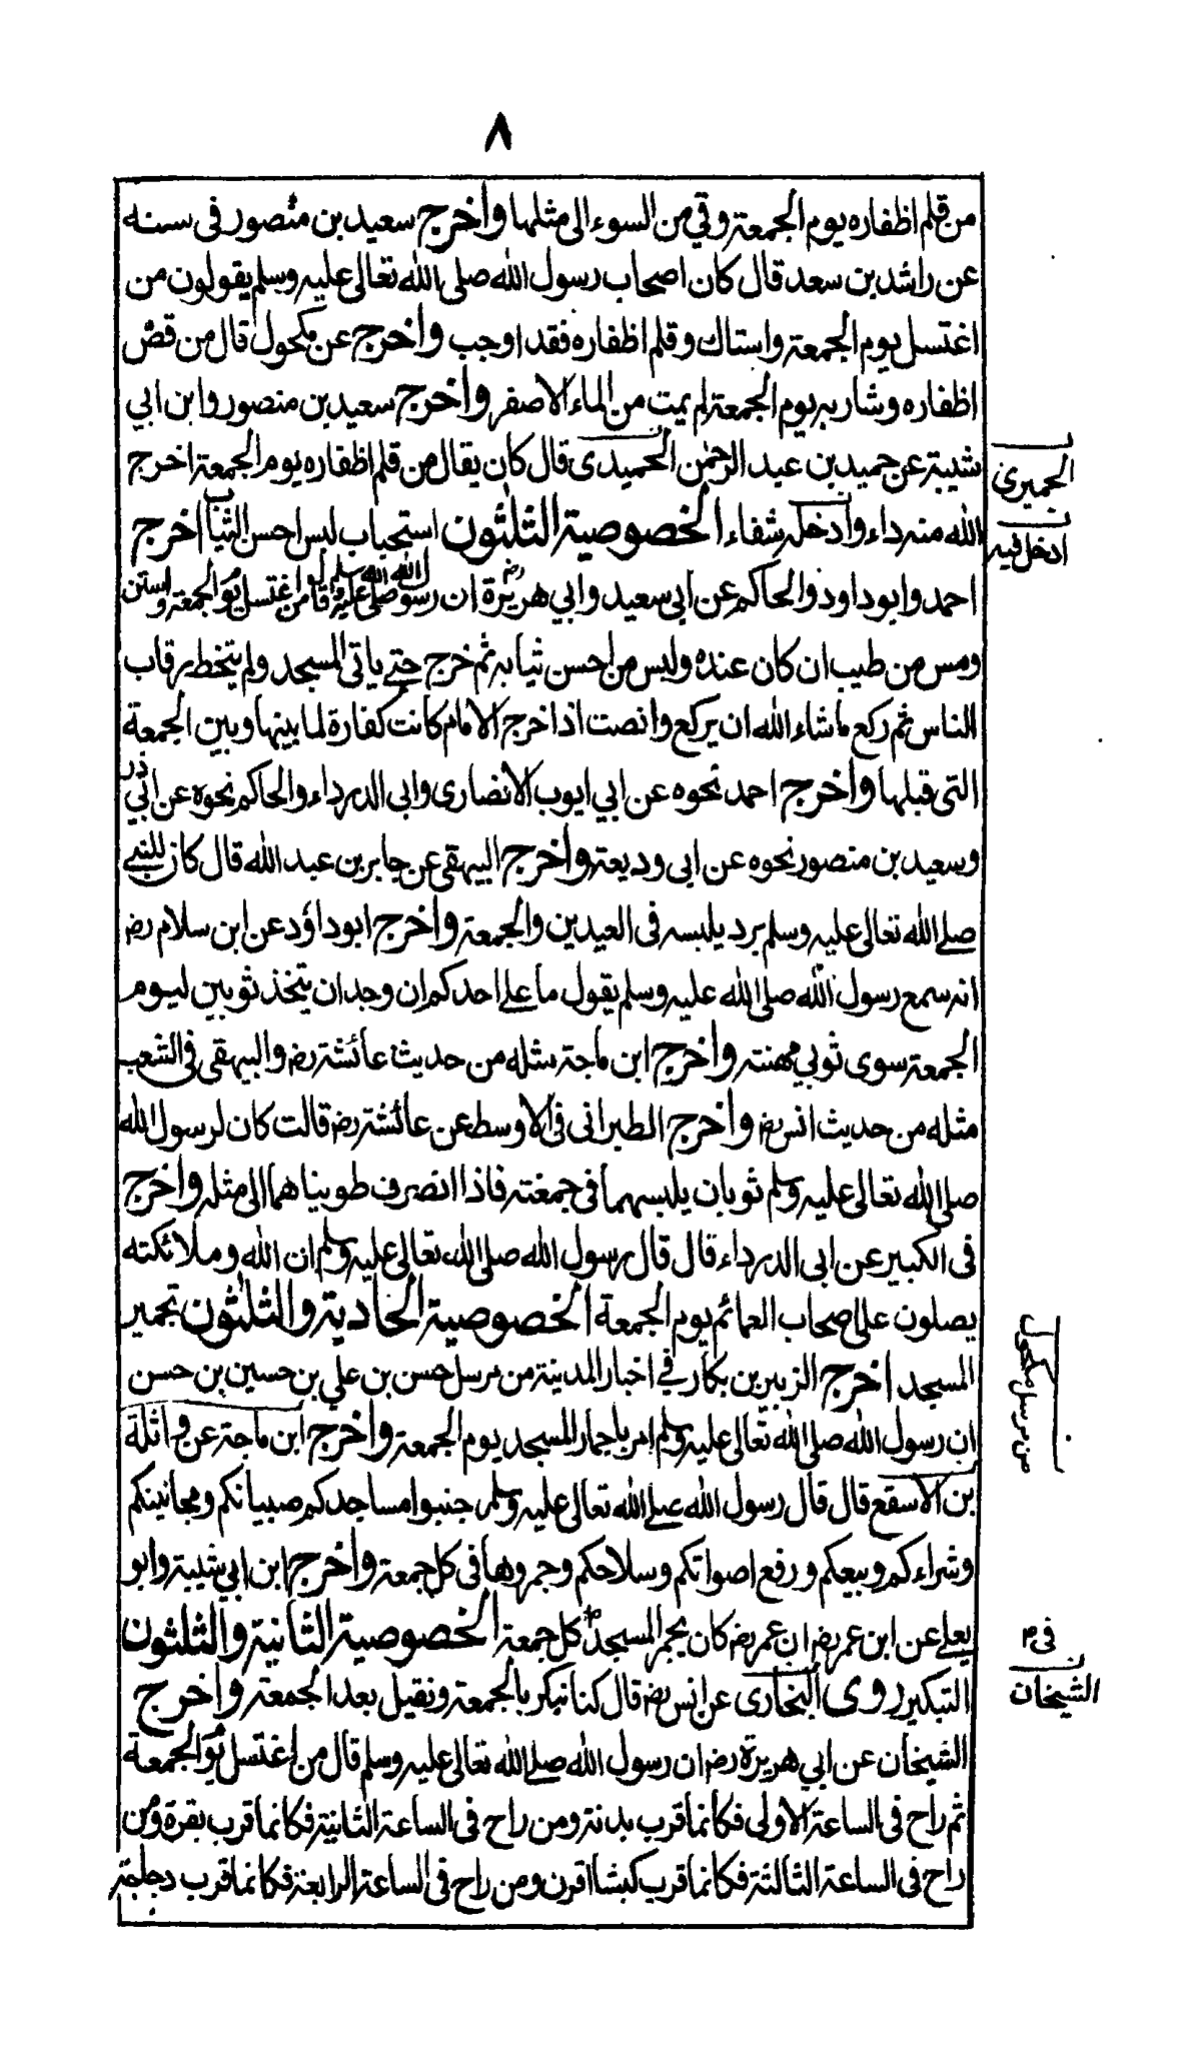 ٨
من قلم اظفاره يوم الجمعة وقي من السوء الى مثلها واخرج سعيد بن منصور فى سننه
عن راشد بن سعد قال كان اصحاب رسول الله صلى الله تعالى عليه وسلم يقولون من
اغتسل يوم الجمعة واستاك وقلم اظفاره فقد اوجب واخرج عن مكحول قال من قص
اظفاره وشاربه يوم الجمعة لم يمت من الماء الاصفر واخرج سعيد بن منصور وابن ابي
شيبة عن حميد بن عبد الرحمٰن الحميدى قال كان يقال من قلم اظفاره يوم الجمعة اخرج
الحميرى
الله منه داء وادخله شفاء الخصوصية الثلٰثون استحباب لبس احسن الثياب اخرج
ادخل فيه
احمد وابو داود والحاكم عن ابي سعيد وابي هريرة رض ان رسول الله صلى الله عليه وسلم قال من اغتسل يوم الجمعة واستن
ومس من طيب ان كان عنده ولبس من احسن ثيابه ثم خرج حتے ياتى المسجد ولم يتخط رقاب
الناس ثم ركع ما شاء الله ان يركع وانصت اذا خرج الامام كانت كفارة لما بينها وبين الجمعة
التى قبلها واخرج احمد نحوه عن ابي ايوب الانصارى وابى الدرداء والحاكم نحوه عن ابي ذر
وسعيد بن منصور نحوه عن ابى وديعة واخرج البيهقى عن جابر بن عبد الله قال كان للنبے
صلے الله تعالى عليه وسلم برد يلبسه فى العيدين والجمعة واخرج ابو داؤد عن ابن سلام رض
انه سمع رسول الله صلى الله عليه وسلم يقول ما علے احدكم ان وجد ان يتخذ ثوبين ليوم
الجمعة سوى ثوبي مهنته واخرج ابن ماجة مثله من حديث عائشة رض والبيهقى فى الشعب
مثله من حديث انس رض واخرج الطبرانى فى الاوسط عن عائشة رض قالت كان لرسول الله
صلى الله تعالى عليه وسلم ثوبان يلبسهما فى جمعته فاذا انصرف طويناهما الى مثله واخرج
فى الكبير عن ابى الدرداء قال قال رسول الله صلى الله تعالى عليه وسلم ان الله وملائكته
يصلون على اصحاب العمائم يوم الجمعة الخصوصية الحادية والثلٰثون تجمير
المسجد اخرج الزبير بن بكار في اخبار المدينة من مرسل حسن بن علي بن حسين بن حسن
من مرسل مكحول
ان رسول الله صلى الله تعالى عليه وسلم امر باجمار المسجد يوم الجمعة واخرج ابن ماجة عن واثلة
بن الاسقع قال قال رسول الله صلے الله تعالى عليه وسلم جنبوا مساجدكم صبيانكم ومجانينكم
وشراءكم وبيعكم ورفع اصواتكم وسلاحكم وجمروها فى كل جمعة واخرج ابن ابي شيبة وابو
يعلے عن ابن عمر رض ان عمر رض كان يجمر المسجد كل جمعة الخصوصية الثانية والثلثون
فى م
التبكير روى البخارى عن انس رض قال كنا نبكر بالجمعة ونقيل بعد الجمعة واخرج
الشيخان
الشيخان عن ابي هريرة رض ان رسول الله صلے الله تعالى عليه وسلم قال من اغتسل يوم الجمعة
ثم راح فى الساعة الاولى فكانما قرب بدنة ومن راح فى الساعة الثانية فكانما قرب بقرة ومن
راح فى الساعة الثالثة فكانما قرب كبشا اقرن ومن راح فى الساعة الرابعة فكانما قرب دجاجة